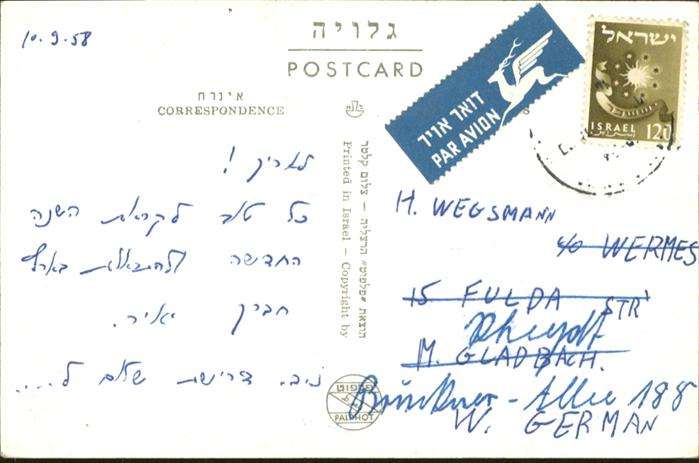 10.9.58
גלויה
POSTCARD
אינרת
CORRESPONDENCE
לאריק !
כל טוב לקראת השנה
החדשה ולהתראות בארץ
חברך יאיר.
נ.ב. דרישת שלום ל....
הוצאת "פלפוט" הרצליה – צלום קלטר
Printed in Israel – Copyright by
פלפוט
PALPHOT
דואר אויר
PAR AVION
ישראל
ISRAEL 120
H. WEGSMANN
c/o WERMES
15 FULDA STR
Rheydt
M. GLADBACH.
Brückner-Allee 188
W. GERMAN